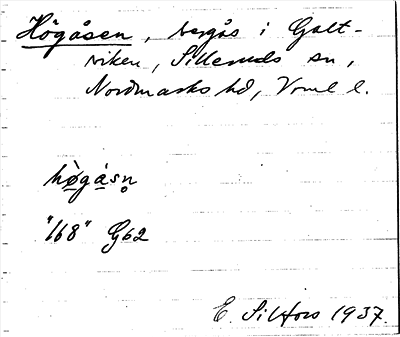 Högåsen, bergås i Galt-
viken, Silleruds sn,
Nordmarks hd, Vrml l.
hø̀gåsn̥
"168" G62
E. Silfors 1937.